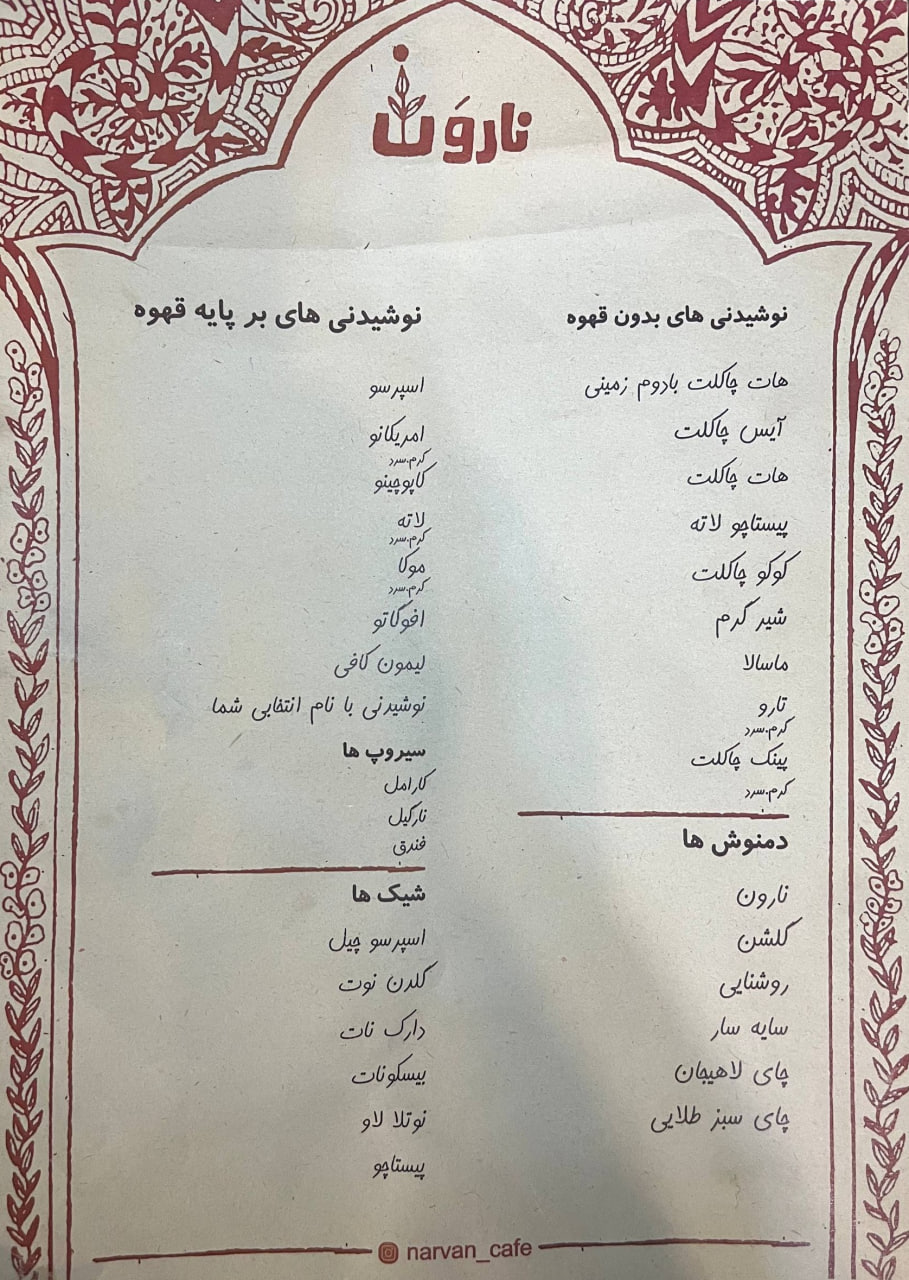 نارون
نوشیدنی های بدون قهوه
هات چاکلت بادوم زمینی
آیس چاکلت
هات چاکلت
پیستاچو لاته
کوکو چاکلت
شیر گرم
ماسالا
تارو
گرم.سرد
پینک چاکلت
گرم.سرد
دمنوش ها
نارون
گلشن
روشنایی
سایه سار
چای لاهیجان
چای سبز طلایی
نوشیدنی های بر پایه قهوه
اسپرسو
امریکانو
گرم.سرد
کاپوچینو
لاته
گرم.سرد
موکا
گرم.سرد
افوگاتو
لیمون کافی
نوشیدنی با نام انتخابی شما
سیروپ ها
کارامل
نارگیل
فندق
شیک ها
اسپرسو چیل
گلدن نوت
دارک نات
بیسکونات
نوتلا لاو
پیستاچو
narvan_cafe